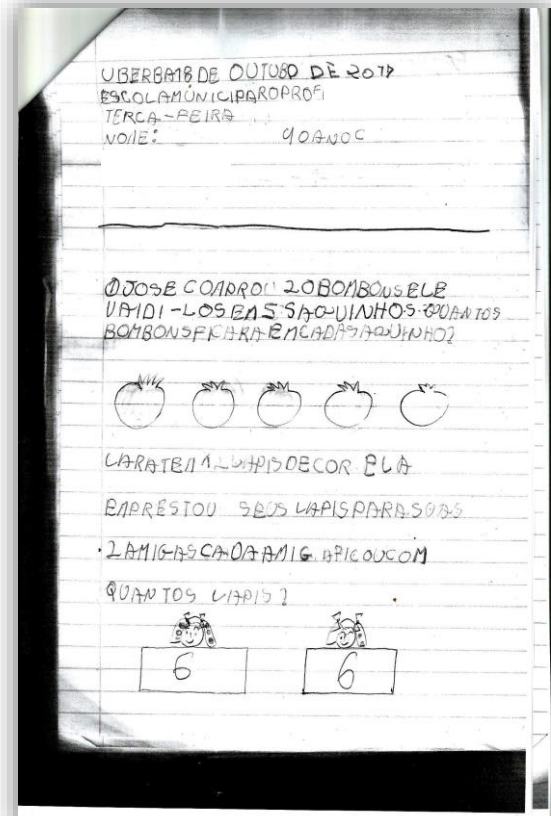 UBERBA18 DE OUTUBO DE 2017
ESCOLAMÚNICIPAROPROFI
TERCA-FEIRA
NOME: 4OANOC
①JOSE COMPROU 20BOMBONSELE
VAIDI-LOSEM5 SAQUINHOS.QUANTOS
BOMBONSFICARAEMCADASAQUINHO?
LAPISDECOR ELA
EMPRESTOU SEUS LAPISPARASUAS
2AMIGASCADAAMIG AFICOUCOM
QUANTOS LAPIS?
6 6